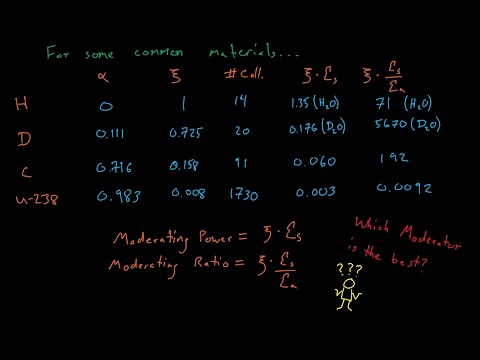 For some common materials...
α ξ # Coll. ξ·Σs ξ·Σs/Σa
H 0 1 14 1.35 (H2O) 71 (H2O)
D 0.111 0.725 20 0.176 (D2O) 5670 (D2O)
C 0.716 0.158 91 0.060 192
U-238 0.983 0.008 1730 0.003 0.0092
Moderating Power = ξ·Σs
Moderating Ratio = ξ·Σs/Σa
Which Moderator
is the best?
???